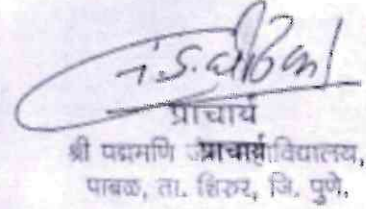 प्राचार्य
श्री पद्ममणि प्राचार्य विद्यालय,
पाबळ, ता. शिरुर, जि. पुणे.